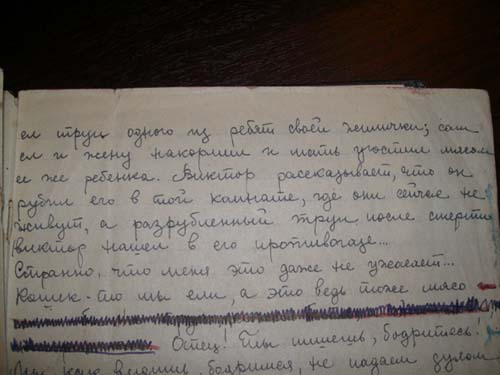 ел труп одного из ребят своей жилички; сам
ел и жену накормил и мать угостил мясом
ее же ребенка. Виктор рассказывает, что он
рубил его в той комнате, где они сейчас не
живут, а разрубленный труп после смерти
виктор нашел в его противогазе...
Странно, что меня это даже не ужасает...
Кошек-то мы ели, а это ведь тоже мясо
Отец! Ты пишешь, бодритесь.
как видишь, бодримся, не падаем духом